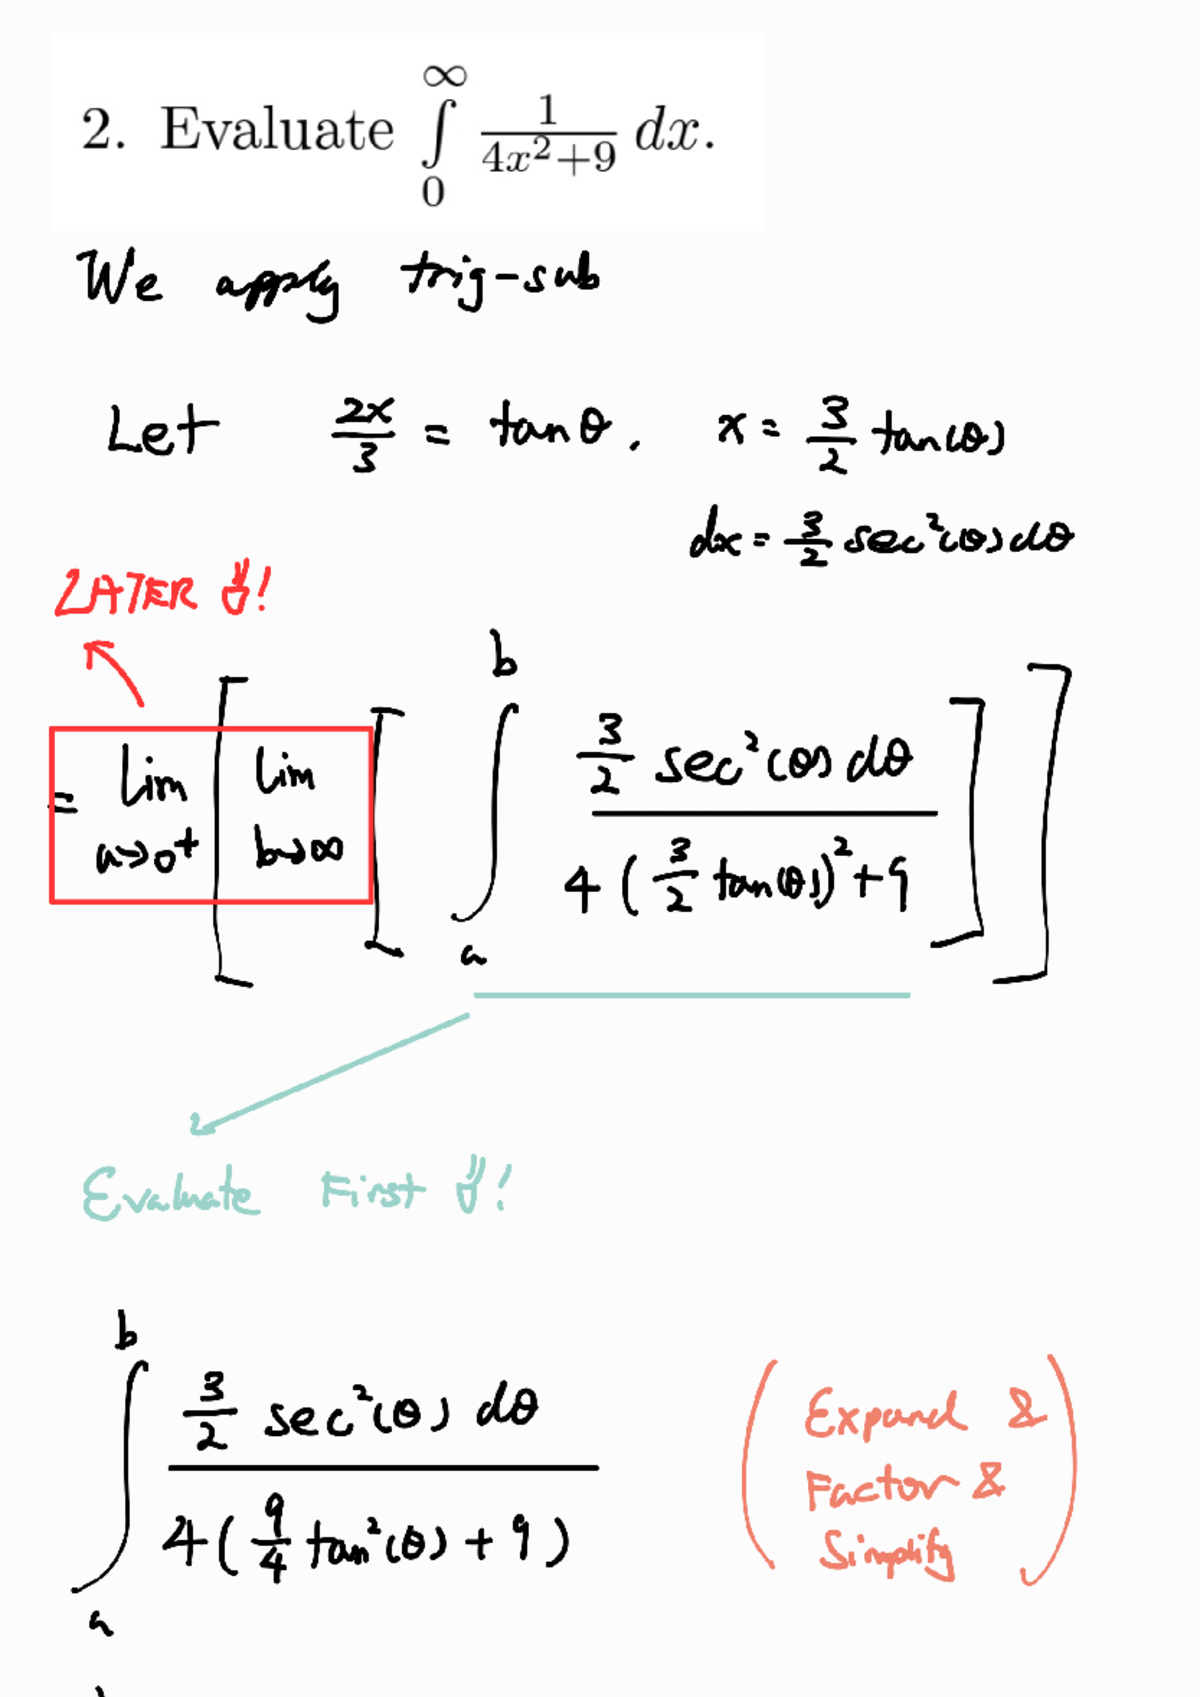 2. Evaluate ∫₀^∞ 1/(4x²+9) dx.
We apply trig-sub
Let 2x/3 = tanθ. x = 3/2 tan(θ)
dx = 3/2 sec²(θ) dθ
LATER !
= lim a→0⁺ [ lim b→∞ [ ∫ₐᵇ (3/2 sec²(θ) dθ) / (4(3/2 tan(θ))²+9) ] ]
Evaluate First !
∫ₐᵇ (3/2 sec²(θ) dθ) / (4(9/4 tan²(θ) + 9))
( Expand &
Factor &
Simplify )